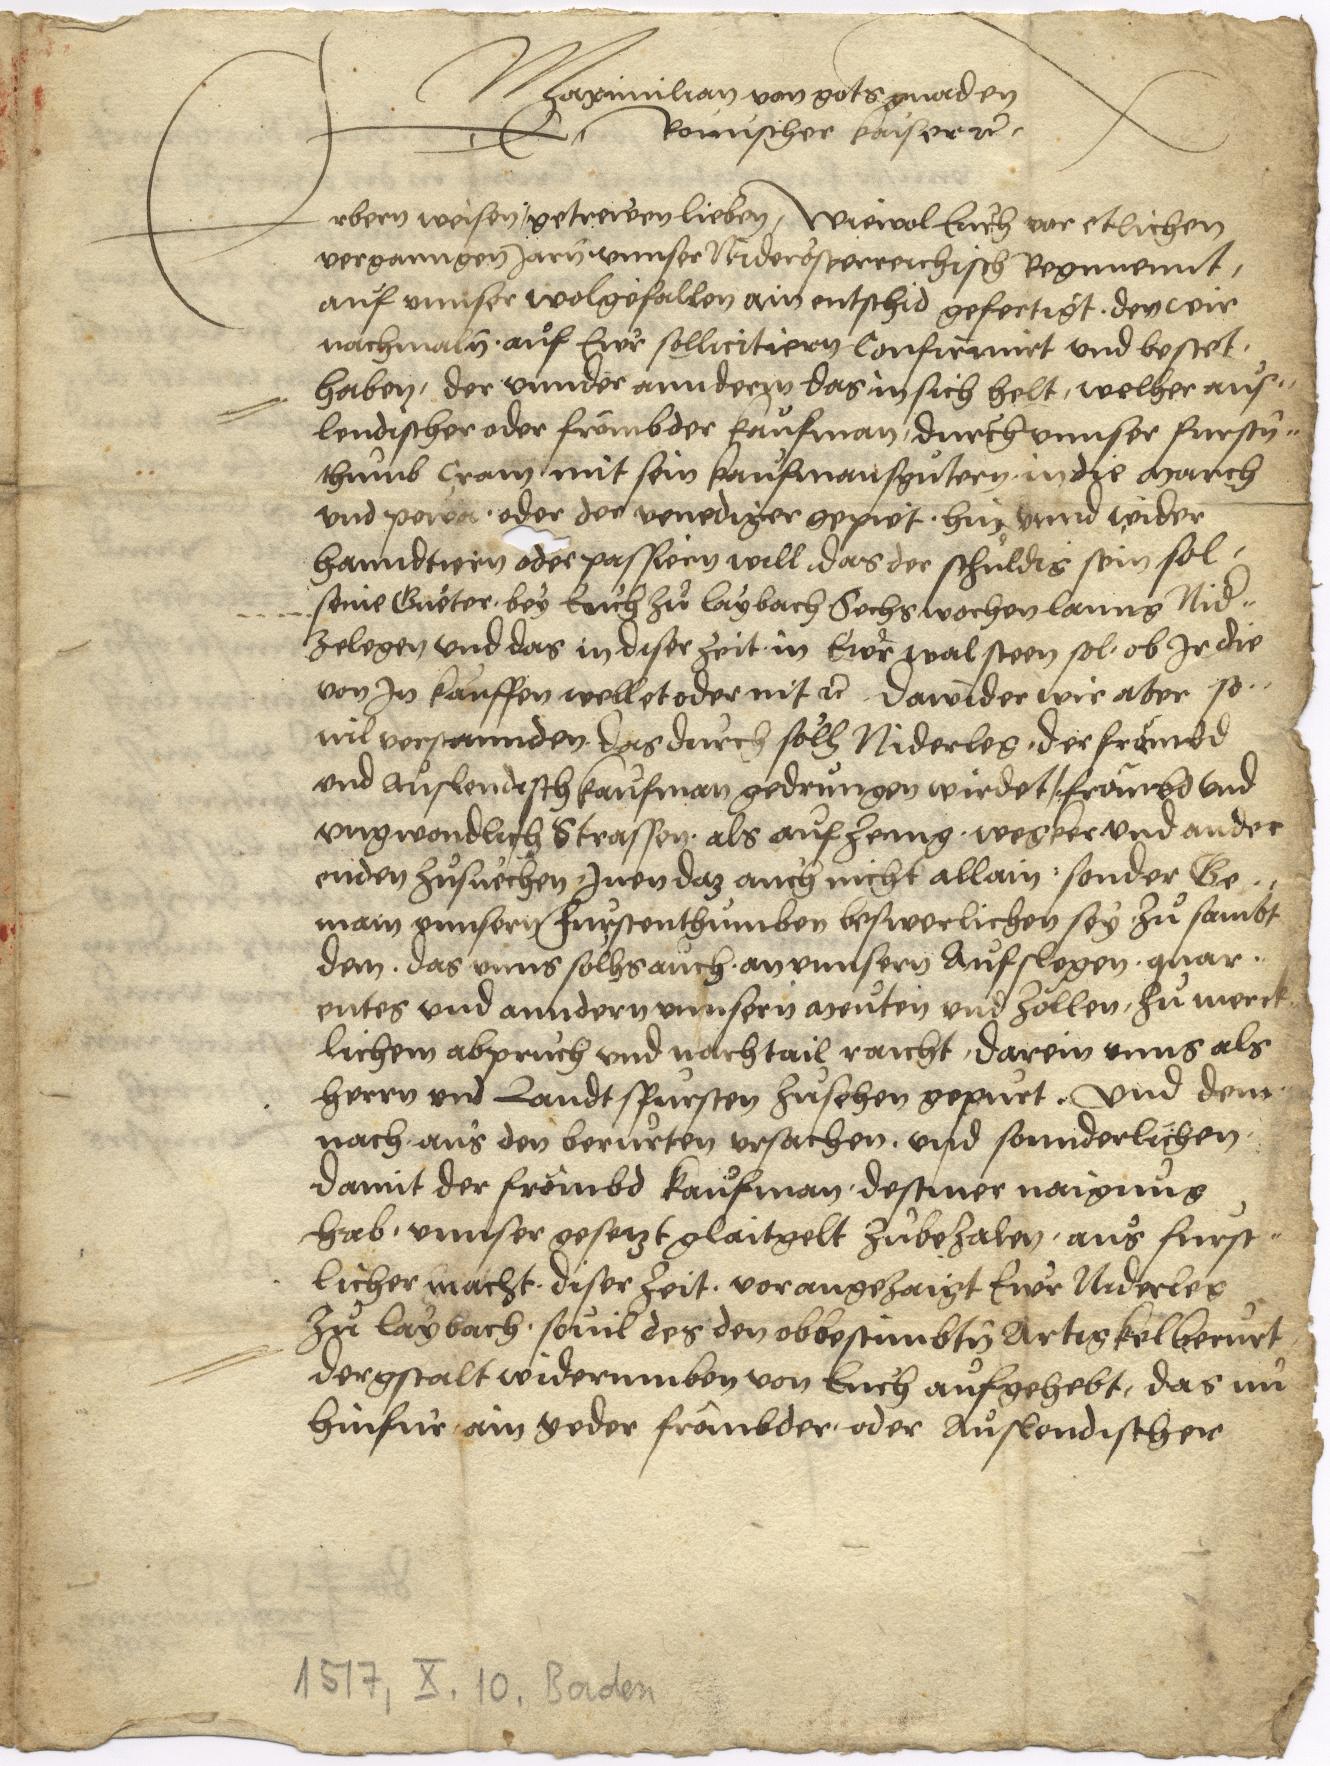 Maximilian von gots gnaden
Romischer kaiser rc.
Erbern weisen getrewen lieben, Wiewol Euch vor etlichen
verganngen Jarn vnnser Niderösterreichisch Regimennt,
auf vnnser wolgefallen ain entschid gefertigt. den wir
nachmaln. auf Ewr sollicitiern Confirmirt vnd bestet.
haben, der vnnder anndern das in sich helt, welher aus-
lendischer oder frömbder kaufman, durch vnnser furstn-
thumb Crain mit sein kaufmansgutern in die March
vnd oder der venediger gepiet. hin vnnd wider
hanndtiern oder passiern will, das der schuldig sein sol,
seine Gueter. bey Euch zu laybach Sechs wochen lanng Nid-
zelegen vnd das in diser zeit. in Ewr wal steen sol. ob Ir die
von In kauffen wellet oder nit rc. dawider wir aber so-
uil verstannden. das durch solh Niderleg. der frömbd
vnd Auslendisch kaufman gedrungen wirdet, frömbd vnd
vngwondlich Strassen. als auf Zeing. wegker vnd ander
enden zusuechen, Inen daz auch nicht allain. sonder Ge-
main vnnsern Furstenthumben beswerlichen sey. Zu sambt
dem. das vnns solhs auch. an vnnsern Aufslegen. quar-
entes vnd anndern vnnsern Meuten vnd Zollen, zu merck-
lichem abpruch vnd nachtail raicht, darein vnns als
herrn vnd Landtsfursten zusehen gepurt. Vnd dem-
nach aus den berurten vrsachen. vnd sonnderlichen
damit der frömbd kaufman. destmer naigung
hab. vnnser gesetzt glaitgelt zubezalen, aus furst-
licher macht. diser zeit. vorangezaigt Ewr Niderleg
zu laybach. souil des den obbestimbtn Artigkel berurt
dergstalt widerumben von Euch aufgehebt, das nu
hinfur. ain yeder frömbder. oder Auslendischer
1517, X. 10. Baden